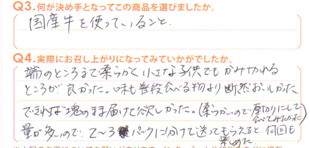 Q3.何が決め手となってこの商品を選びましたか。
国産牛を使っていること。
Q4.実際にお召し上がりになってみていかがでしたか。
端のところまで柔らかく小さな子供でもかみきれる
ところが良かった。味も普段食べる物より断然おいしかった
できれば塊のまま届けて欲しかった。(柔らかいので厚切りにして食べてみたかった)
量が多いので、2〜3パックに分けて送ってもらえると、何回も楽めた